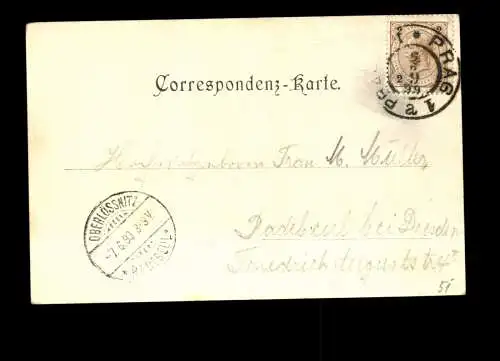 PRAG 1
Correspondenz-Karte.
Hochwohlgeboren Frau M. Müller
OBERLÖSSNITZ
-7.6.99. 8-9V.
(RADEBEUL)
Radebeul bei Dresden
Friedrich Auguststr. 4
51